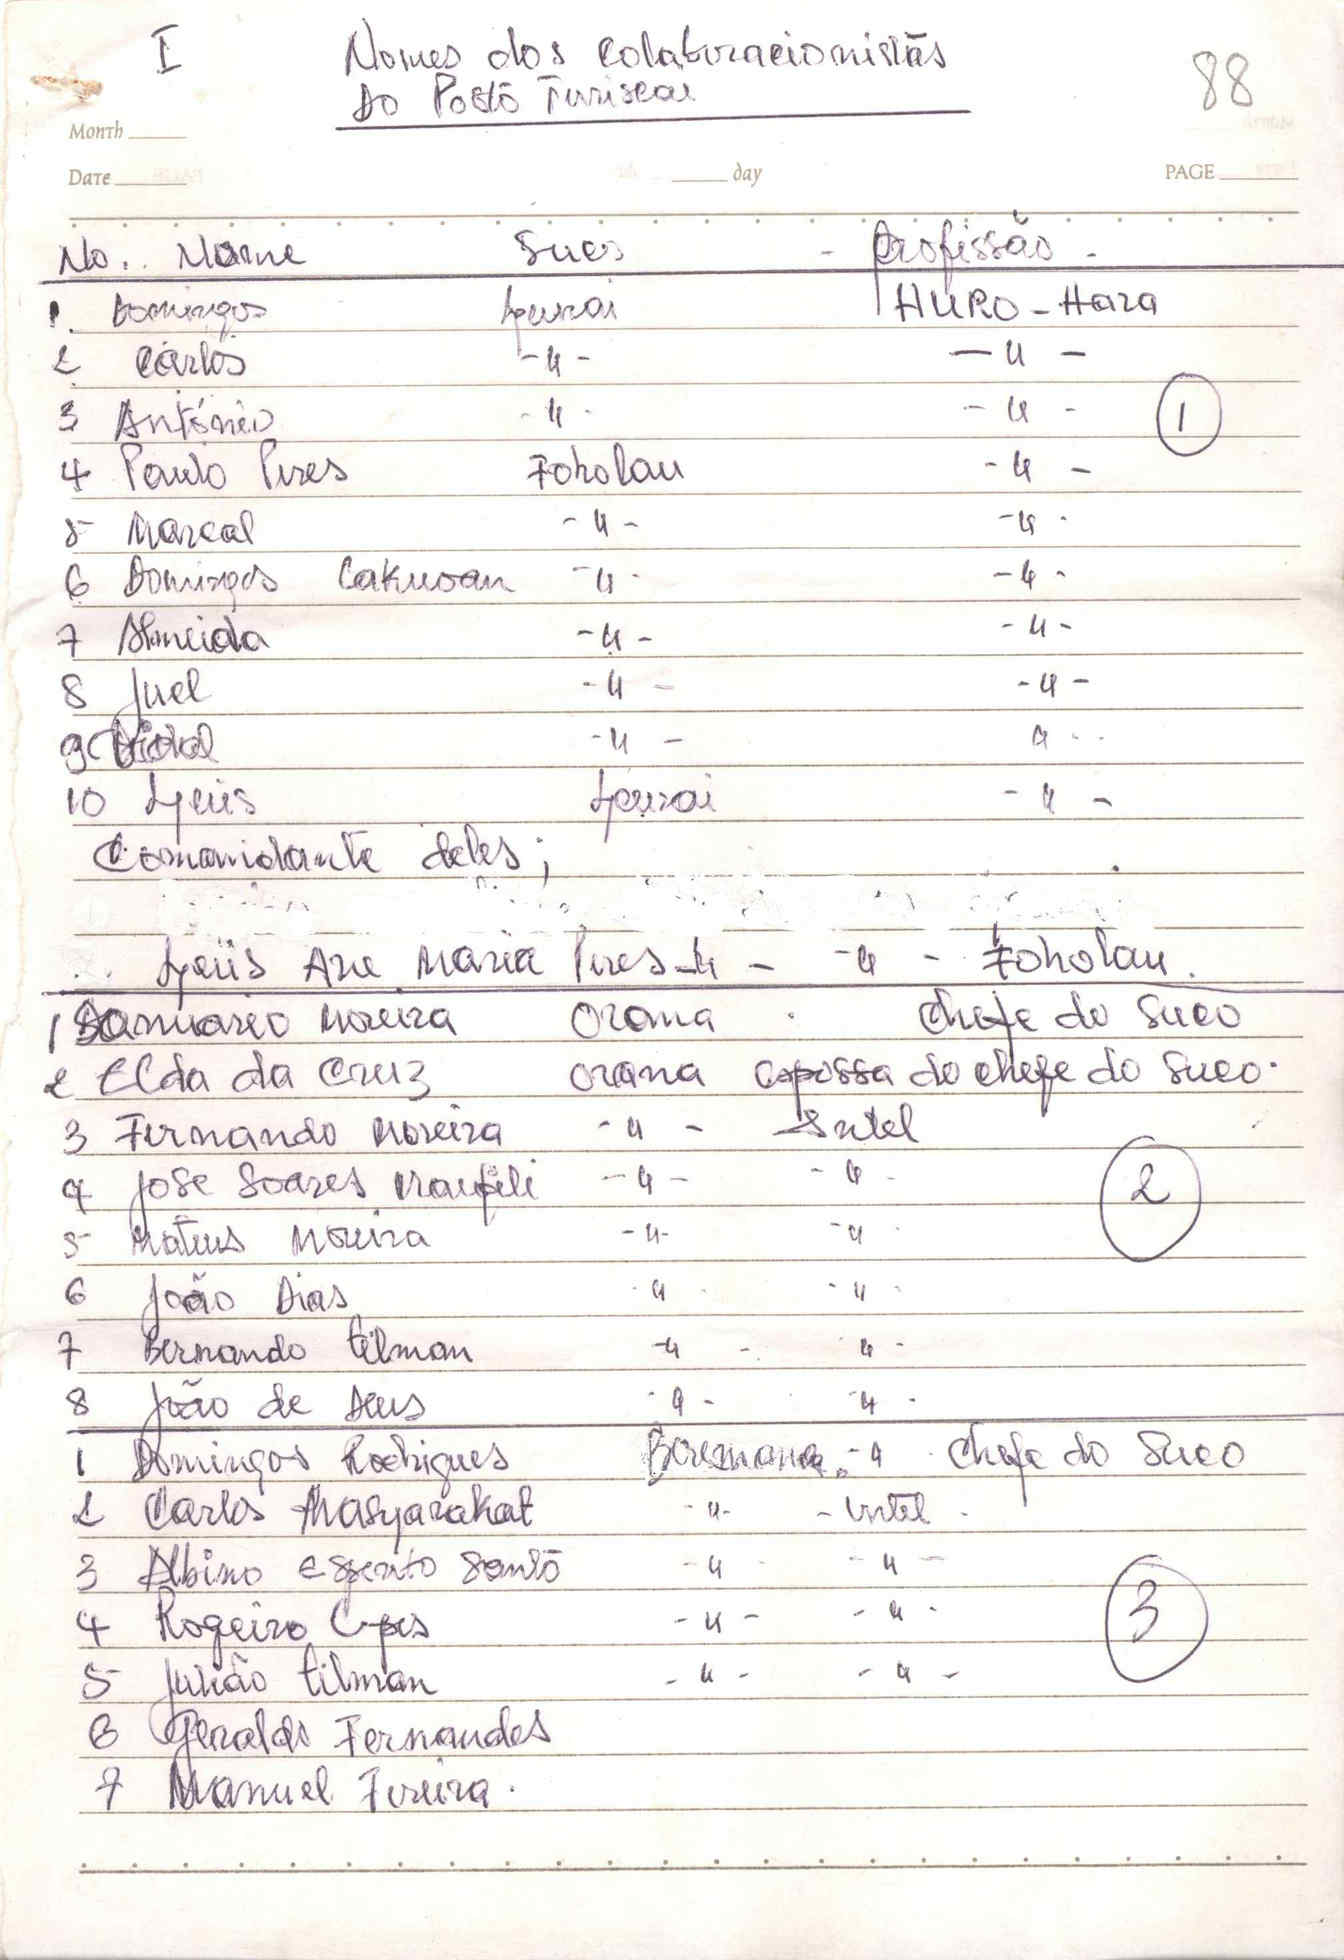 I
Nomes dos Colaboracionistãs
Do Postõ Turiscai
88
Month
Date
day
PAGE
No. Nome Suco - Profissão -
1. Domingos Leurai HURO - Hara
2 Carlos -4- - 4 -
3 António - 4 - - 4 - 1
4 Paulo Pires Foholau - 4 -
5 Marcal - 4 - - 4 -
6 Domingos Cakuoan - 4 - - 4 -
7 Almeida - 4 - - 4 -
8 Juel - 4 - - 4 -
9 - 4 - 4 - -
10 Leurai - 4 -
Comandante deles;
Ave Maria Pires - 4 - - 4 - Foholau.
1 Januario Moreira Orana . Chefe do Suco
2 Elda da Cruz Orana espossa do chefe do Suco.
3 Fernando Moreira - 4 - Intel
4 Jose Soares - 4 - - 4 -
5 Mateus Moreira - 4 - - 4 - 2
6 João Dias 4 - 4 -
7 Bernando tilman - 4 - 4 -
8 João de Deus - 4 - - 4 -
1 Domingos Rodrigues Beremana - 4 . Chefe do Suco
2 Carlos Masyarakat - 4 - - Intel -
3 Albino Esperito Santõ - 4 - - 4 -
4 Rogeiro Lopes - 4 - - 4 - 3
5 Julião tilman - 4 - - 4 -
6 Geraldo Fernandes
7 Manuel Fereira .